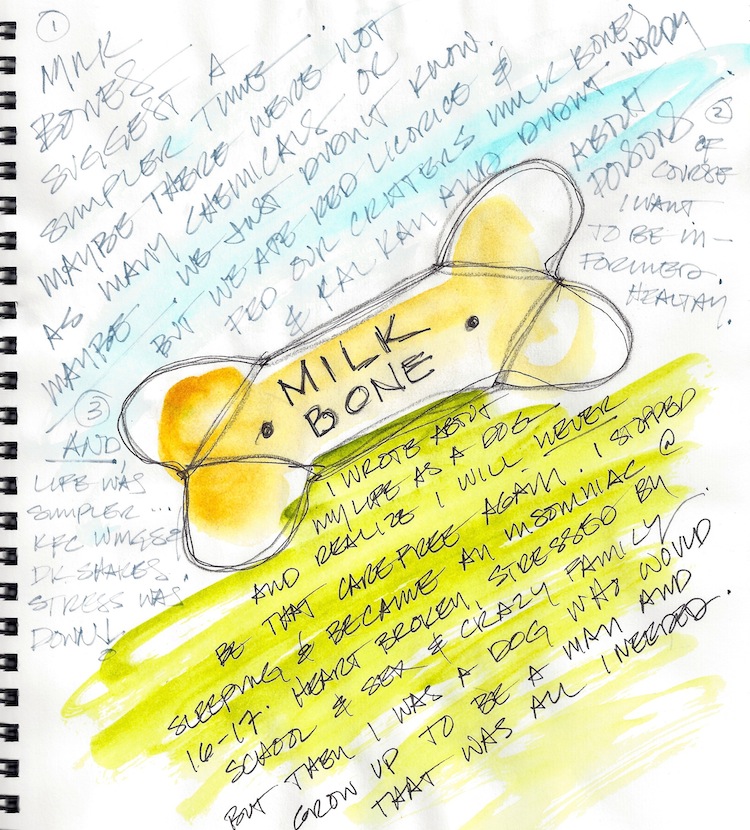 ①
MILK
BONES
SUGGEST A
SIMPLER TIME.
MAYBE THERE WERE NOT
AS MANY CHEMICALS OR
MAYBE WE JUST DIDN'T KNOW.
BUT WE ATE RED LICORICE &
FED OUR CRITTERS MILK BONES
& KAL KAN AND DIDN'T WORRY
ABOUT
POISONS
②
OF
COURSE
I WANT
TO BE IN-
FORMED.
HEALTHY.
③
AND
LIFE WAS
SIMPLER ...
KFC WINGS &
DK SHAKES.
STRESS WAS
DOWN!
MILK
BONE
I WROTE ABOUT
MY LIFE AS A DOG
AND REALIZE I WILL NEVER
BE THAT CAREFREE AGAIN. I STOPPED
SLEEPING & BECAME AN INSOMNIAC @
16-17. HEART BROKEN, STRESSED BY
SCHOOL & SEX & CRAZY FAMILY.
BUT THEN I WAS A DOG WHO WOULD
GROW UP TO BE A MAN AND
THAT WAS ALL I NEEDED.